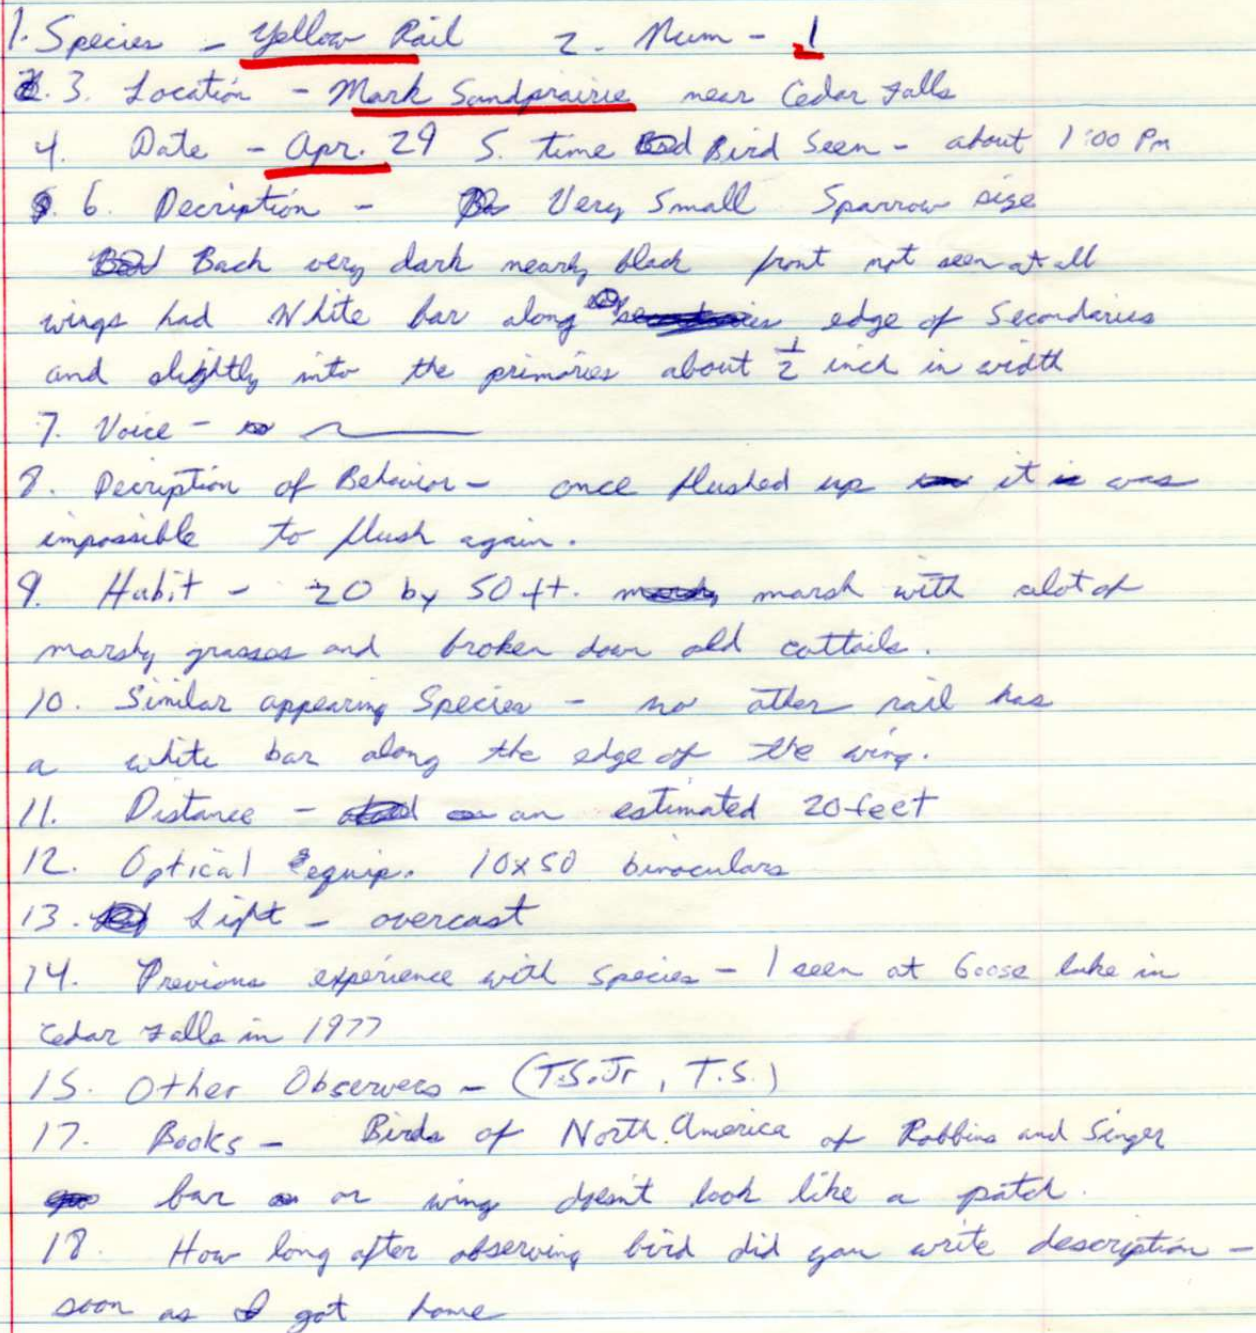 1. Species - Yellow Rail 2. Num - 1
3. Location - Mark Sandprairie near Cedar Falls
4. Date - Apr. 29 5. time Bird Seen - about 1:00 Pm
6. Decription - Very Small Sparrow size
Back very dark nearly black front not seen at all
wings had White bar along edge of Secondaries
and slightly into the primaries about 1/2 inch in width
7. Voice -
8. Decription of Behavior - once flushed up it was
impossible to flush again.
9. Habit - 20 by 50 ft. marsh with alot of
marshy grasses and broken down old cattails.
10. Similar appearing Species - no other rail has
a white bar along the edge of the wing.
11. Distance - an estimated 20 feet
12. Optical equip. 10x50 binoculars
13. Light - overcast
14. Previous experience with species - 1 seen at Goose lake in
Cedar Falls in 1977
15. Other Observers - (T.S. Jr, T.S.)
17. Books - Birds of North America of Robbins and Singer
bar or wing doesn't look like a patch.
18. How long after observing bird did you write description -
soon as I got home